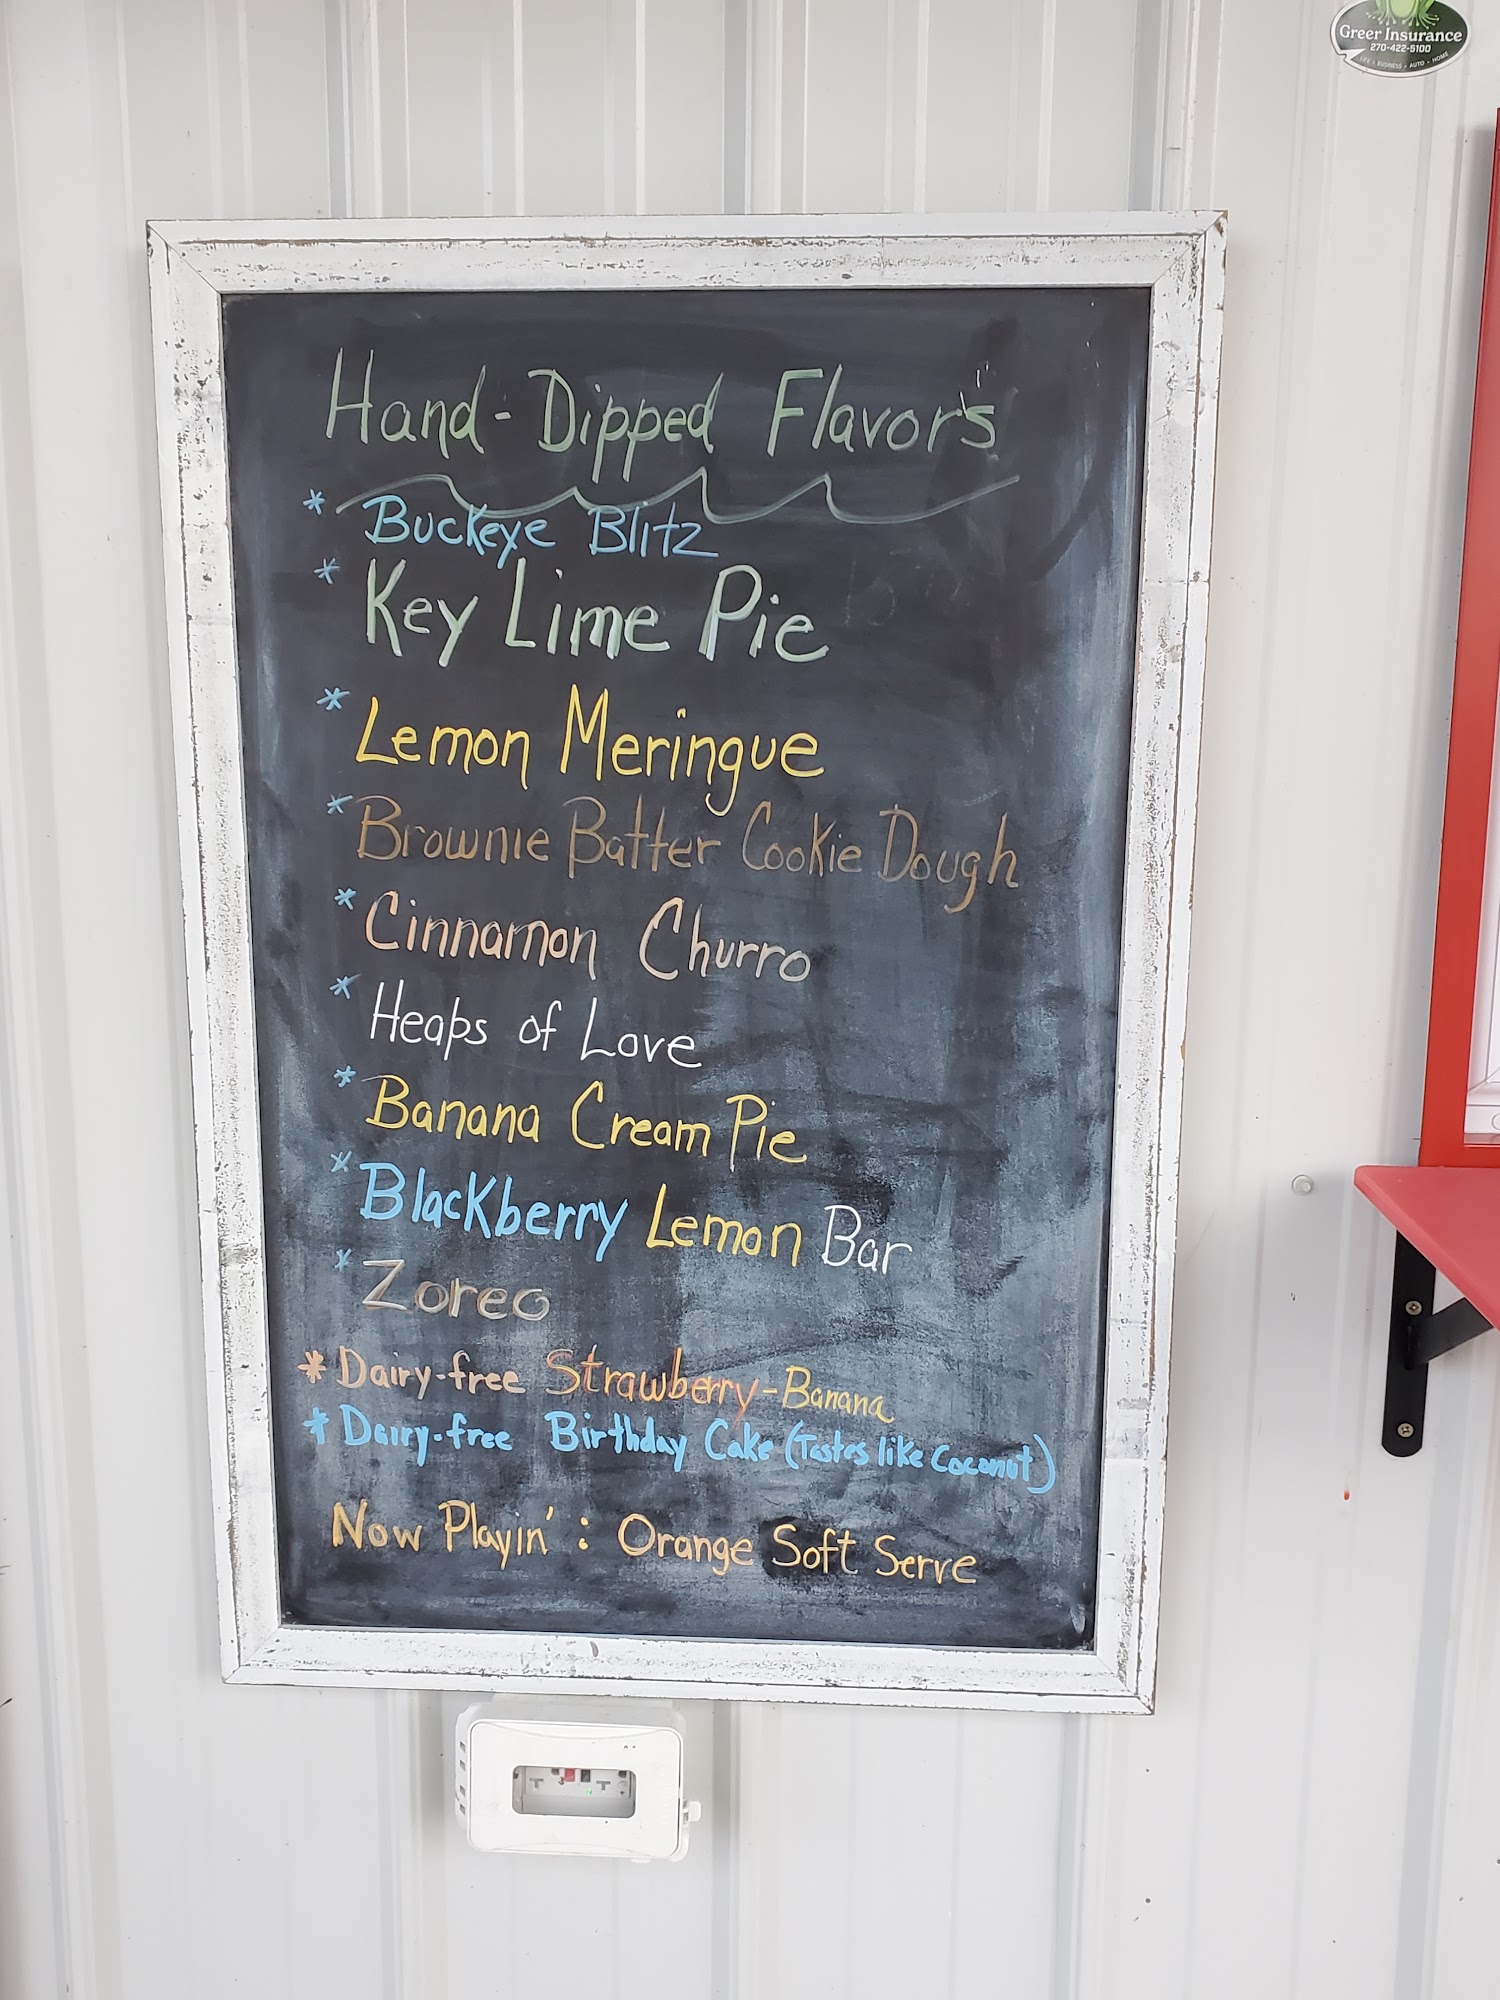 Greer Insurance
270-422-5100
LIFE • BUSINESS • AUTO • HOME
Hand-Dipped Flavors
* Buckeye Blitz
* Key Lime Pie
* Lemon Meringue
* Brownie Batter Cookie Dough
* Cinnamon Churro
* Heaps of Love
* Banana Cream Pie
* Blackberry Lemon Bar
* Zoreo
* Dairy-free Strawberry-Banana
* Dairy-free Birthday Cake (Tastes like Coconut)
Now Playin' : Orange Soft Serve